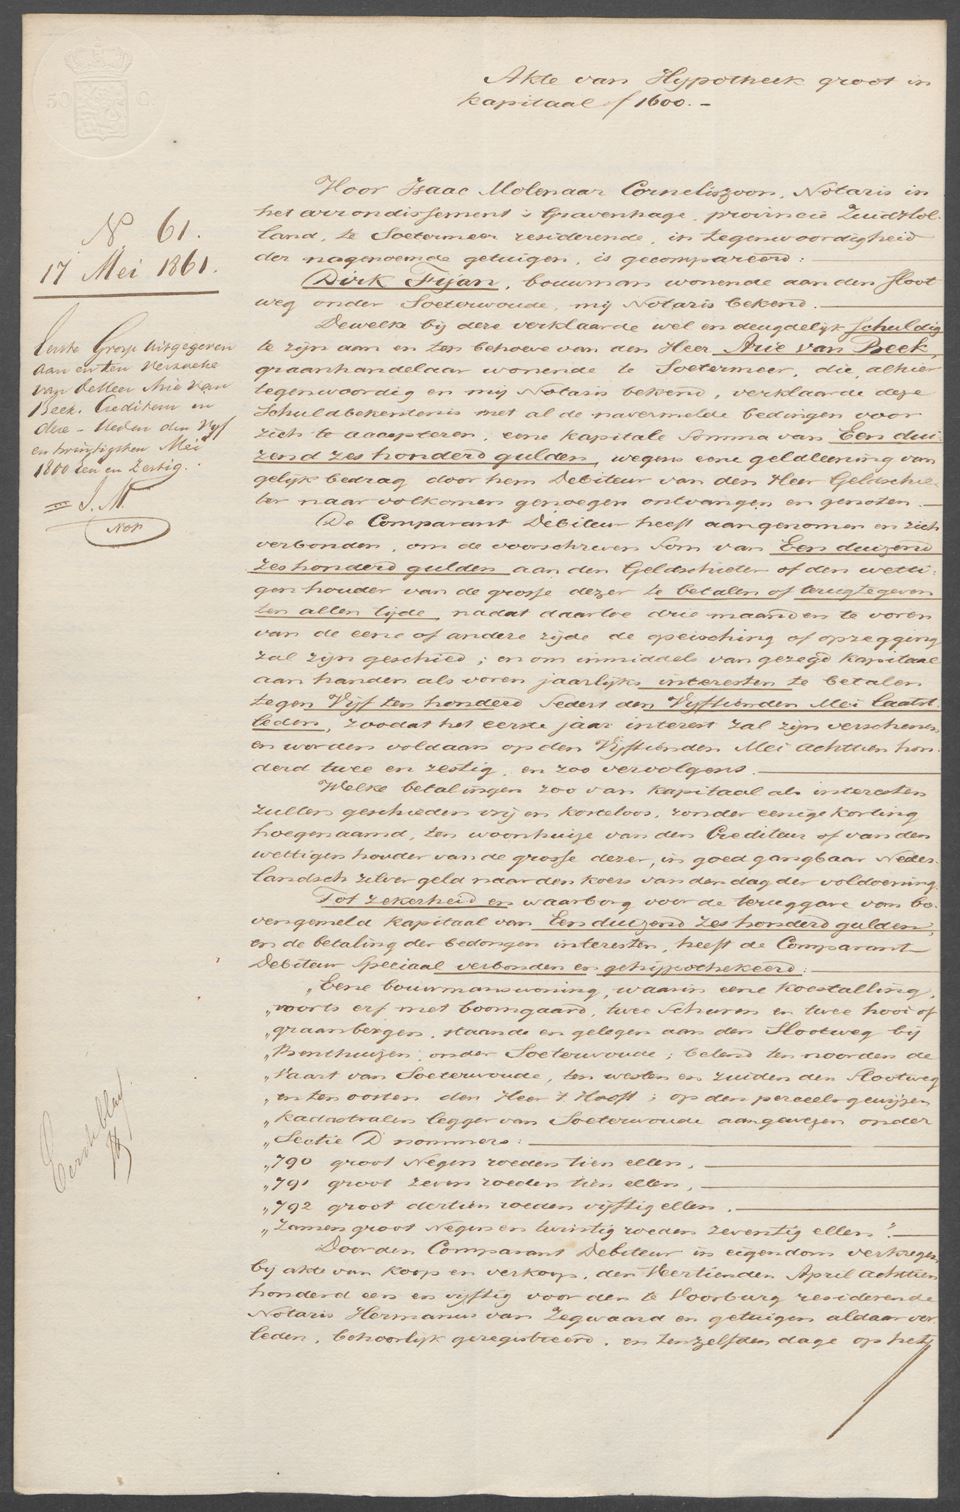 Akte van Hypotheek groot in
kapitaal f 1600.-
50 C.
N 61.
17 Mei 1861.
Eerste Grosse uitgegeven
aan en ten verzoeke
van de Heer Arie van
Beek, Crediteur in
deze - Heden den Vyf
en twintigsten Mei
1800 een en zestig.
I. M.
Not
Eerste blad.
Voor Isaac Molenaar Corneliszoon, Notaris in
het arrondissement 's Gravenhage, provincie Zuidhol-
land, te Soetermeer resideerende, in tegenwoordigheid
der nagenoemde getuigen, is gecompareerd:
Dirk Fijan, bouwman wonende aan den Sloot
weg onder Soeterwoude, mij Notaris bekend.
Dewelke bij deze verklaarde wel en deugdelijk schuldig
te zijn aan en ten behoeve van den Heer Arie van Beek,
graanhandelaar wonende te Soetermeer, die, alhier
tegenwoordig en mij Notaris bekend, verklaarde deze
Schuldbekentenis met al de navermelde bedingen voor
zich te accepteren, eene kapitale Somma van Een dui-
zend zes honderd gulden, wegens eene geldleening van
gelijk bedrag door hem Debiteur van den Heer Geldschie-
ter naar volkomen genoegen ontvangen en genoten.
De Comparant Debiteur heeft aangenomen en zich
verbonden, om de voorschreven Som van Een duizend
zes honderd gulden aan den Geldschieter of den wetti-
gen houder van de grosse dezer te betalen of terugtegeven
ten allen tijde, nadat daartoe drie maanden te voren
van de eene of andere zijde de opeisching of opzegging
zal zijn geschied; en om inmiddels van gezegd kapitaal
aan handen als voren jaarlijks interesten te betalen
tegen Vijf ten honderd Sedert den Vyftienden Mei laatst-
leden, zoodat het eerste jaar interest zal zijn verschenen
en worden voldaan op den Vijftienden Mei achttien hon-
derd twee en zestig, en zoo vervolgens.
Welke betalingen zoo van kapitaal als interesten
zullen geschieden vrij en kosteloos, zonder eenige korting
hoegenaamd, ten woonhuize van den Crediteur of van den
wettigen houder van de grosse dezer, in goed gangbaar Neder-
landsch zilver geld naar den koers van den dag der voldoening.
Tot zekerheid en waarborg voor de teruggave van bo-
vengemeld kapitaal van Een duizend zes honderd gulden,
en de betaling der bedongen interesten, heeft de Comparant
Debiteur Speciaal verbonden en gehypothekeerd:
„Eene bouwmanswoning, waarin eene koestalling,
„voorts erf met boomgaard, twee Schuren en twee hooi of
„graanbergen, staande en gelegen aan den Slootweg bij
„Benthuizen, onder Soeterwoude, belend ten noorden de
„Vaart van Soeterwoude, ten westen en zuiden den Slootweg
„en ten oosten den Heer 't Hooft; op den perceelsgewijzen
„kadastralen legger van Soeterwoude aangewezen onder
„Sectie D nommers:
„790 groot Negen roeden tien ellen,
„791 groot zeven roeden tien ellen,
„792 groot dertien roeden vijftig ellen.
„Zamen groot Negen en twintig roeden zeventig ellen."
Door den Comparant Debiteur in eigendom verkregen
bij akte van koop en verkoop, den Veertienden April achttien
honderd een en vijftig voor den te Voorburg resideerende
Notaris Hermanus van Zegwaard en getuigen aldaar ver-
leden, behoorlijk geregistreerd, en tenzelfden dage op het